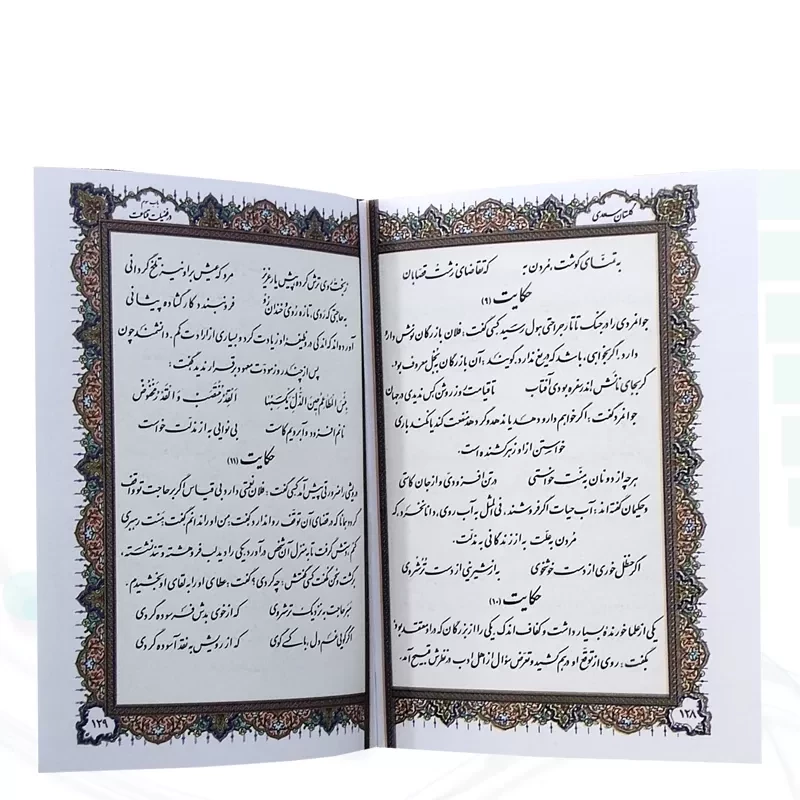 گلستان سعدی
به تمنای گوشت، مردن به که تقاضای زشت قصابان
حکایت (۹)
جوانمردی را در جنگ تاتار جراحتی هول رسید کسی گفت: فلان بازرگان نوش دارو
دارد. اگر بخواهی، باشد که دریغ ندارد. گویند: آن بازرگان به بخل معروف بود.
گر بجای نانش اندر سفره بودی آفتاب تا قیامت روز روشن کس ندیدی در جهان
جوانمرد گفت: اگر خواهم دارو دهد یا ندهد و گر دهد منفعت کند یا نکند. باری
خواستن از او زهر کشنده است.
هر چه از دونان به منت خواستی در تن افزودی و از جان کاستی
و حکیمان گفته اند: آب حیات اگر فروشند، فی المثل به آب روی، دانا نخرد، که
مردن به علت به از زندگانی به مذلت.
اگر حنظل خوری از دست خوشخوی به از شیرینی از دست ترشروی
حکایت (۱۰)
یکی از علما خورنده بسیار داشت و کفاف اندک. یکی را از بزرگان که در او معتقد بود
بگفت: روی از توقع او درهم کشید و تعرض سؤال از اهل ادب در نظرش قبیح آمد.
۱۲۸
باب سوم
در فضیلت قناعت
ز بخت روی ترش کرده پیش یار عزیز مرو که عیش بر او نیز تلخ گردانی
به حاجتی که روی، تازه روی و خندان رو فرو نبندد کار گشاده پیشانی
آورده اند که اندکی در وظیفه او زیادت کرد و بسیاری از ارادت کم. دانشمند چون
پس از چند روز مودت معهود برقرار ندید گفت:
بئس المطاعم حین الذل یکسبها القدر منتصب و القدر مخفوض
نانم افزود و آبرویم کاست بی نوایی به از مذلت خواست
حکایت (۱۱)
درویشی را ضرورتی پیش آمد کسی گفت: فلان نعمتی دارد بی قیاس اگر بر حاجت تو واقف
گردد همانا که در قضای آن توقف روا ندارد گفت: من او را ندانم گفت: منت رهبری
کنم. دستش گرفت تا به منزل آن شخص درآورد. یکی را دید لب فروهشته و تند نشسته،
برگشت و سخن نگفت کسی گفتش: چه کردی؟ گفت: عطای او را به لقای او بخشیدم.
مبر حاجت به نزدیک ترشروی که از خوی بدش فرسوده گردی
اگر گویی غم دل با کسی گوی که از رویش به نقد آسوده گردی
۱۲۹